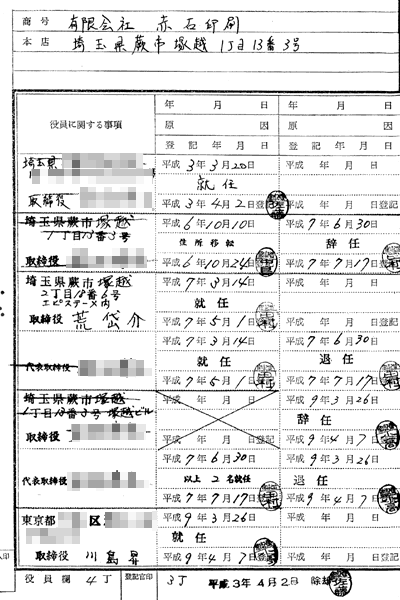 商号 有限会社 赤石印刷
本店 埼玉県蕨市塚越1丁目13番3号
役員に関する事項
年 月 日 年 月 日
原 因 原 因
登記 年 月 日 登記 年 月 日
埼玉県
平成3年3月20日 平成 年 月 日
就任
取締役
平成3年4月2日登記 平成 年 月 日登記
埼玉県蕨市塚越
1丁目13番3号
平成6年10月10日 平成7年6月30日
住所移転 辞任
取締役
平成6年10月24日 平成7年7月17日
埼玉県蕨市塚越
2丁目18番6号
エピステーX内
平成7年3月14日 平成 年 月 日
就任
取締役 荒岱介
平成7年5月1日 平成 年 月 日登記
平成7年3月14日 平成7年6月30日
就任 退任
代表取締役
平成7年5月1日 平成7年7月17日
埼玉県蕨市塚越
1丁目13番3号 塚越ビル
平成 年 月 日 平成9年3月26日
辞任
取締役
平成 年 月 日登記 平成9年4月7日
平成7年6月30日 平成9年3月26日
以上2名就任 退任
代表取締役
平成7年7月17日 平成9年4月7日
東京都 区
平成9年3月26日 平成 年 月 日
就任
取締役 川島昇
平成9年4月7日 平成 年 月 日登記
役員欄 4丁 登記官印 3丁 平成3年4月2日